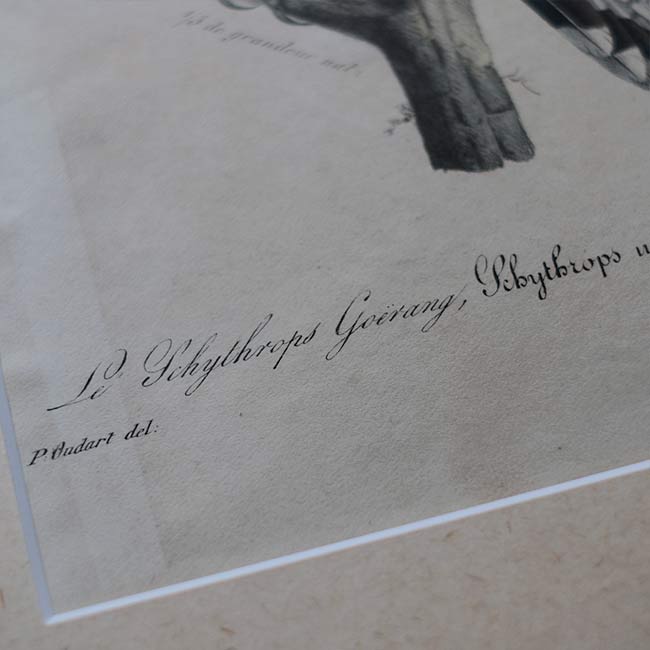 1/3 de grandeur nat.
Le Schythrops Goërang, Schythrops
P. Oudart del: